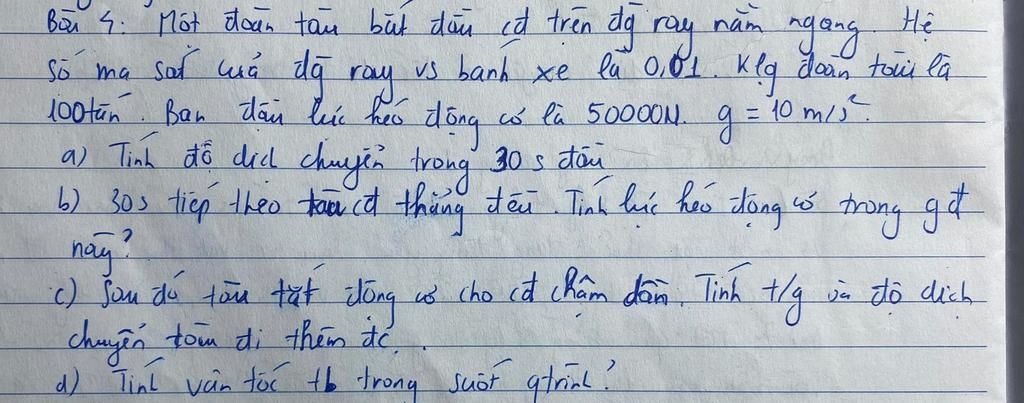 Bài 4: Một đoàn tàu bắt đầu cđ trên đg ray nằm ngang. Hệ
số ma sát cuả đg ray vs bánh xe là 0,01. Klg đoàn tàu là
100 tấn. Ban đầu lực kéo động cơ là 50000N. g = 10 m/s².
a) Tính độ dịch chuyển trong 30 s đầu
b) 30s tiếp theo tàu cđ thẳng đều. Tính lực kéo động cơ trong gđ
này?
c) Sau đó tàu tắt động cơ cho cđ chậm dần. Tính t/g và độ dịch
chuyển tàu đi thêm đc.
d) Tính vân tốc tb trong suốt qtrình?